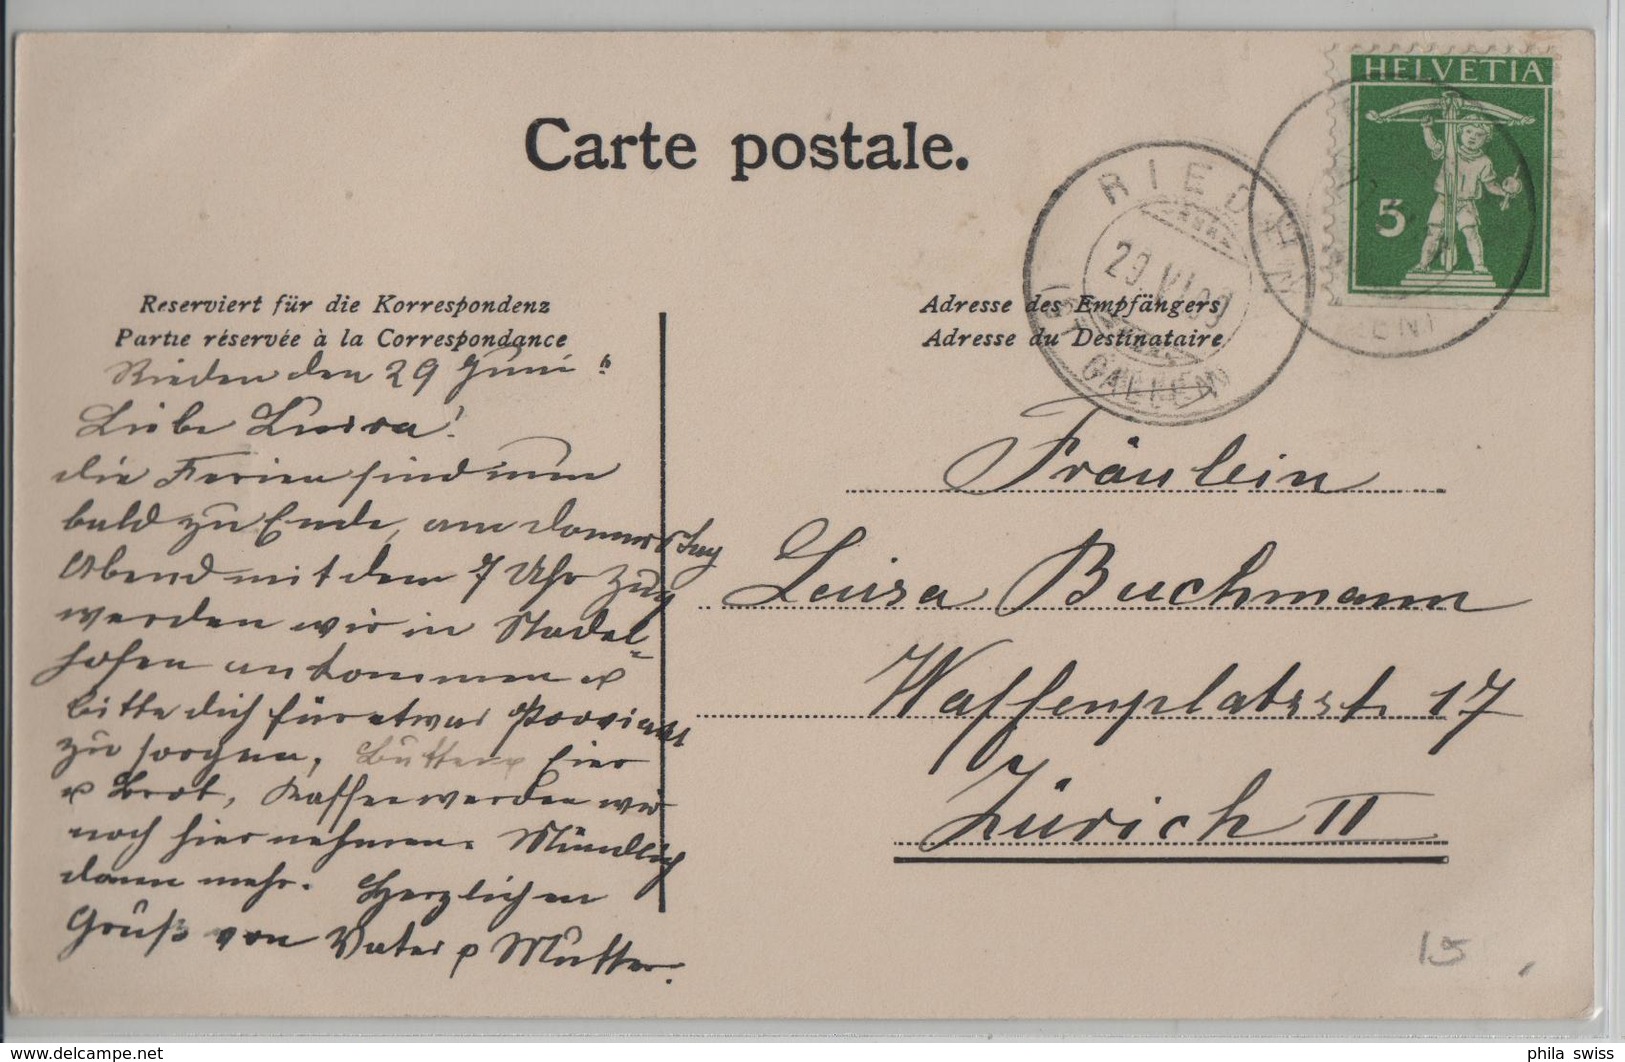 Carte postale.
HELVETIA
5
RIEDEN
29.VI.09
(ST. GALLEN)
Reserviert für die Korrespondenz
Partie réservée à la Correspondance
Adresse des Empfängers
Adresse du Destinataire
Rieden den 29 Juni
Liebe Luisa!
die Ferien sind nun
bald zu Ende, am Donnerstag
Abend mit dem 7 Uhr Zug
werden wir in Stadel-
hofen ankommen u
bitte dich für etwas Proviant
zu sorgen, Butter Eier
u Brot, Kaffee werden wir
noch hier nehmen. Mündlich
dann mehr. Herzlichen
Gruß von Vater u Mutter.
Fräulein
Luisa Buchmann
Waffenplatzstr 17
Zürich II
15
phila swiss